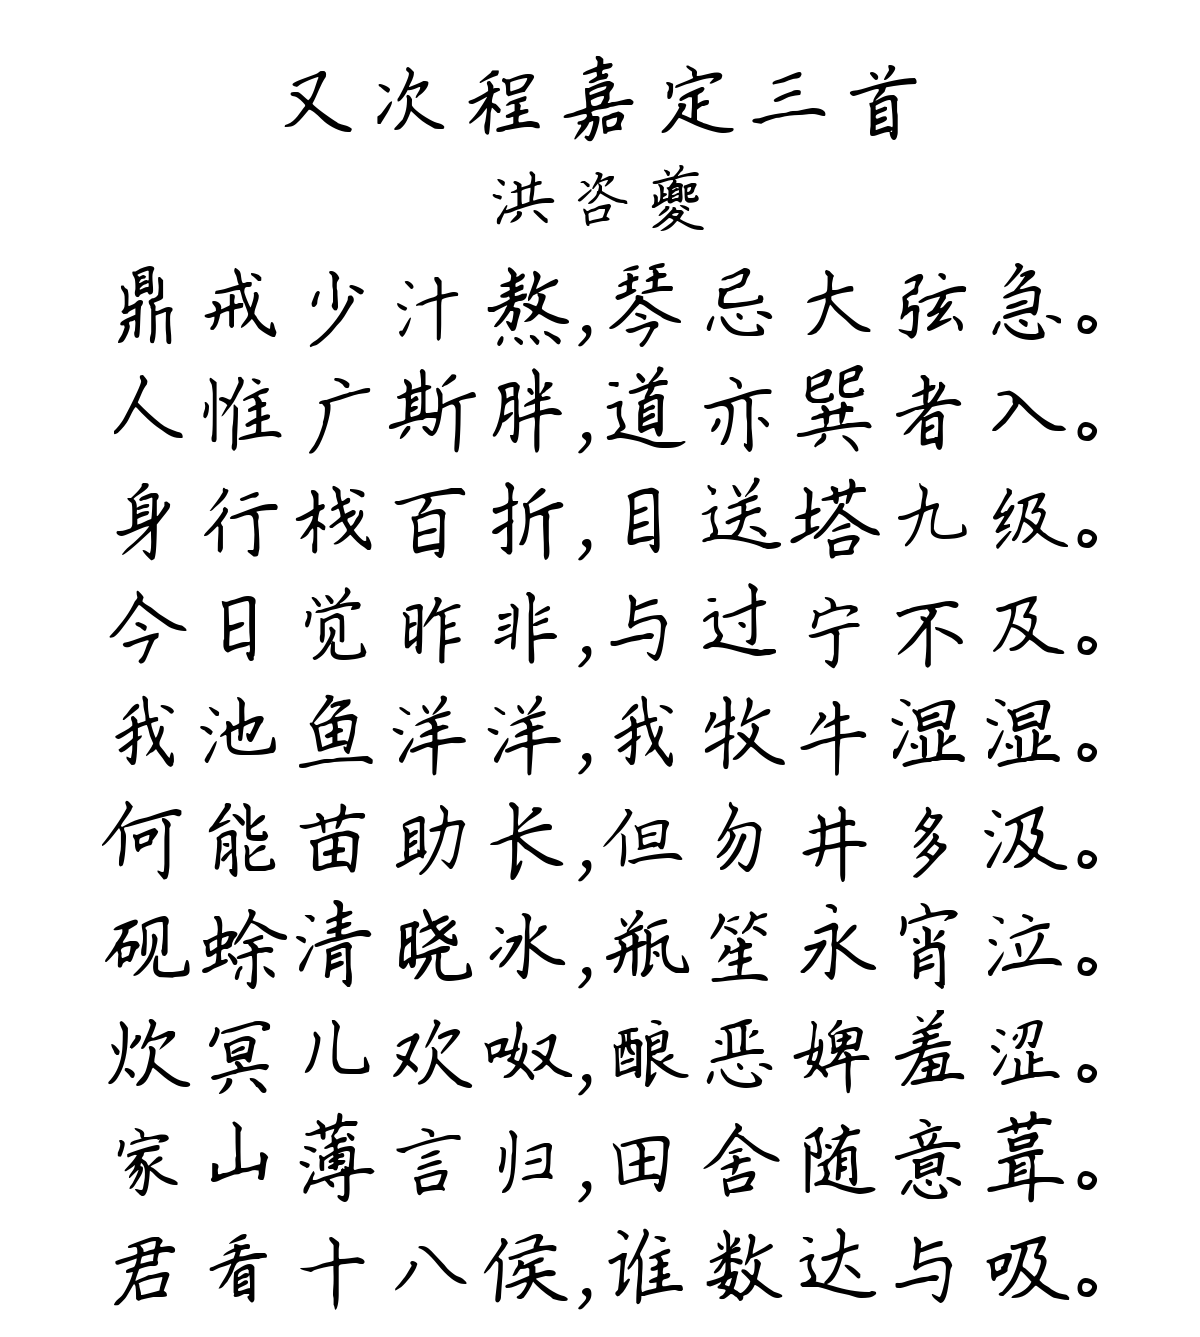 又次程嘉定三首
洪咨夔
鼎戒少汁熬,琴忌大弦急。
人惟广斯胖,道亦巽者入。
身行栈百折,目送塔九级。
今日觉昨非,与过宁不及。
我池鱼洋洋,我牧牛湿湿。
何能苗助长,但勿井多汲。
砚蜍清晓冰,瓶笙永宵泣。
炊冥儿欢呶,酿恶婢羞涩。
家山薄言归,田舍随意葺。
君看十八侯,谁数达与吸。